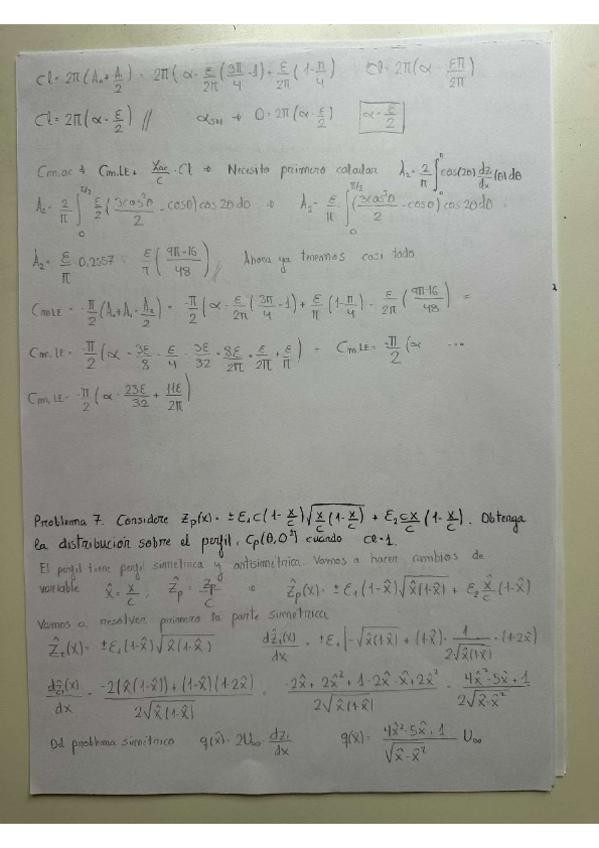 Cl = 2π(A₀ + A₁/2) = 2π(α - ε/2π (3π/4 - 1) + ε/2π (1 - π/4)) Cl = 2π(α - επ/2π)
Cl = 2π(α - ε/2) // → 0 = 2π(α - ε/2) α = ε/2
Cm.ac → Cm.LE + Xac/c · Cl → Necesito primero calcular A₂ = 2/π ∫₀^π cos(2θ) dz/dx (θ) dθ
A₂ = 2/π ∫₀^π/2 ε/2 (3cos²θ/2 - cosθ) cos 2θ dθ → A₂ = ε/π ∫₀^π/2 (3cos²θ/2 - cosθ) cos 2θ dθ
A₂ = ε/π · 0,2557 = ε/π (9π-16/48) // Ahora ya tenemos casi todo
Cm.LE = -π/2 (A₀ + A₁ - A₂/2) = -π/2 (α - ε/2π (3π/4 - 1) + ε/π (1 - π/4) - ε/2π (9π-16/48) =
Cm.LE = -π/2 (α - 3ε/8 - ε/4 - 3ε/32 + 8ε/2π + ε/2π + ε/π) = Cm.LE = -π/2 (α ...
Cm.LE = -π/2 (α - 23ε/32 + 11ε/2π)
Problema 7. Considere Zp(x) = ±ε₁c(1-x/c)√(x/c (1-x/c)) + ε₂cx/c (1-x/c). Obtenga
la distribución sobre el perfil, Cp(θ,0±) cuando Cl=1.
El perfil tiene perfil simetrica y antisimetrica. Vamos a hacer cambios de
variable x̂ = x/c, Ẑp = Zp/c → Ẑp(x) = ±ε₁(1-x̂)√(x̂(1-x̂)) + ε₂ x̂/c (1-x̂)
Vamos a resolver primero la parte simetrica
Ẑₜ(x) = ±ε₁(1-x̂)√(x̂(1-x̂)) dẑₜ(x)/dx = ±ε₁[-√(x̂(1-x̂)) + (1-x̂) · 1/2√(x̂(1-x̂)) · (1-2x̂)
dẑₜ(x)/dx = -2(x̂(1-x̂)) + (1-x̂)(1-2x̂)/2√(x̂(1-x̂)) = -2x̂ + 2x̂² + 1 - 2x̂ - x̂ + 2x̂²/2√(x̂(1-x̂)) = 4x̂² - 5x̂ + 1/2√(x̂-x̂²)
Del problema simétrico q(x̂) = 2U∞ · dzₜ/dx q(x) = 4x̂² - 5x̂ + 1/√(x̂-x̂²) U∞